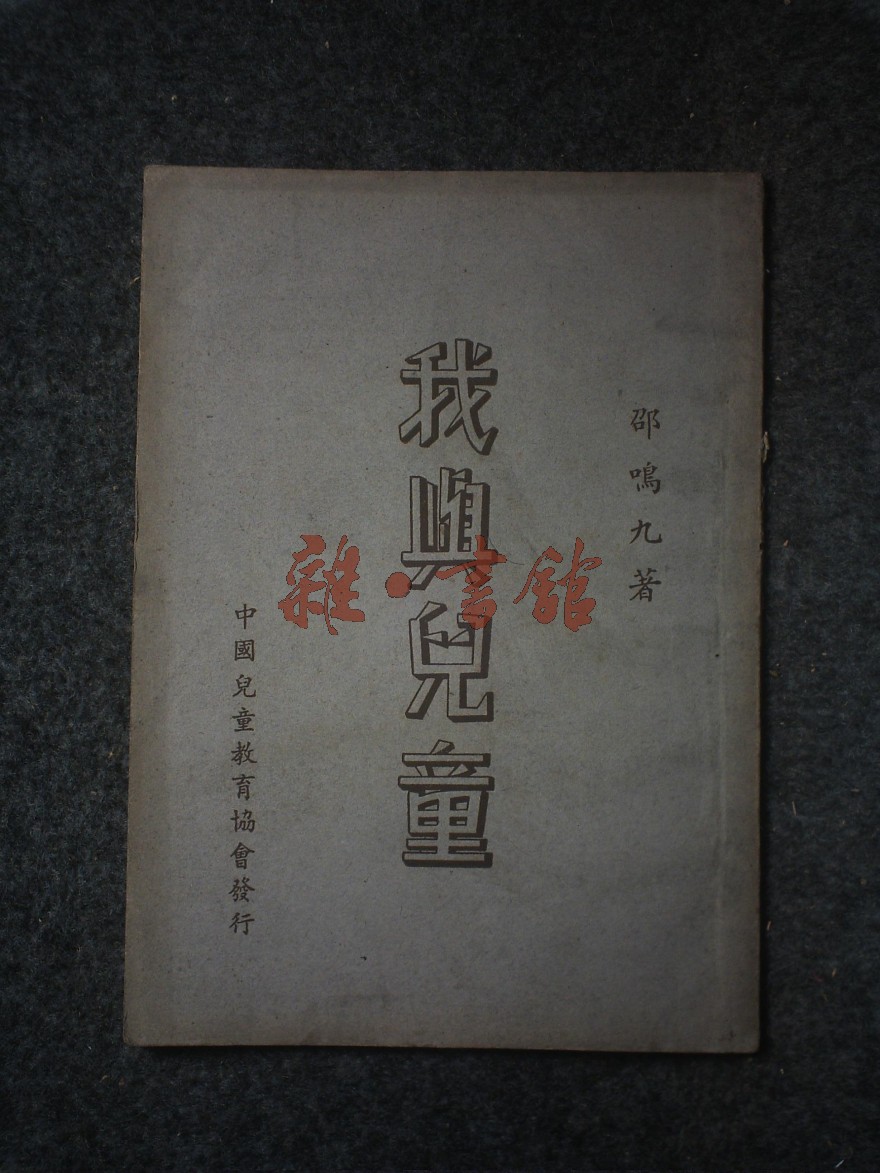 邵鳴九著
我與兒童
中國兒童教育協會發行
雜·書館